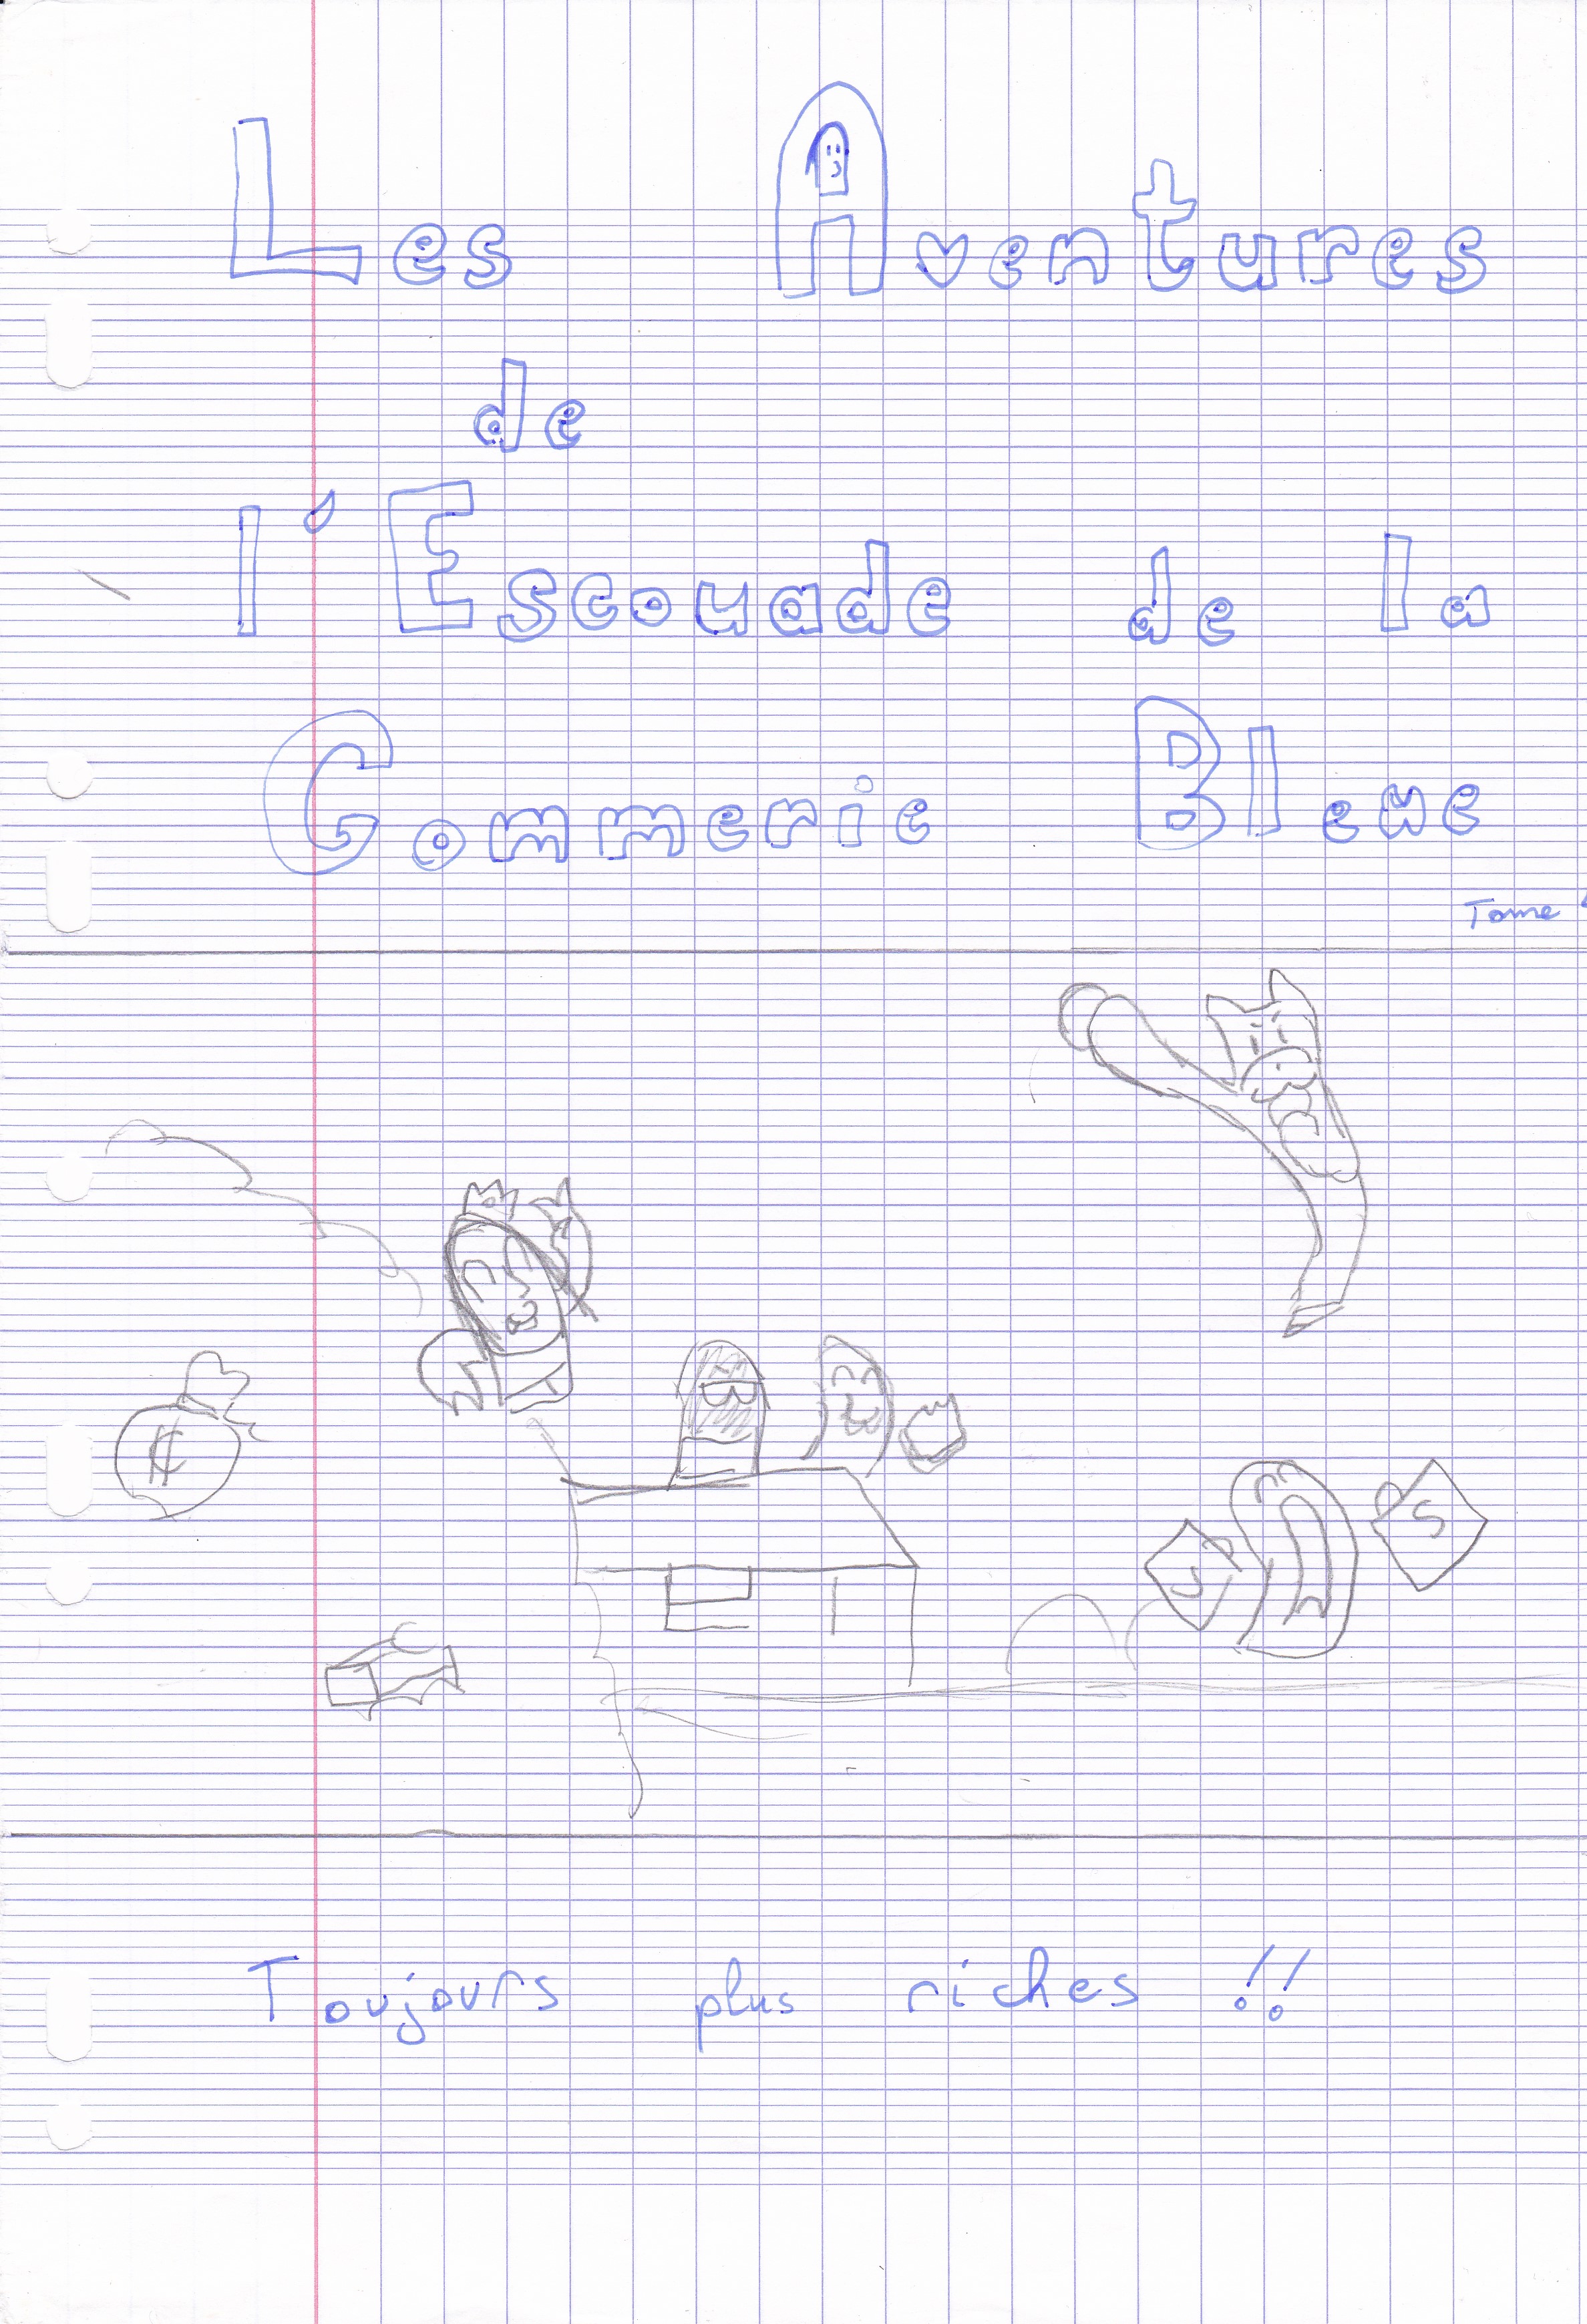 Les Aventures
de
l'Escouade de la
Gommerie Bleue
Tome
₡
U S
Toujours plus riches !!